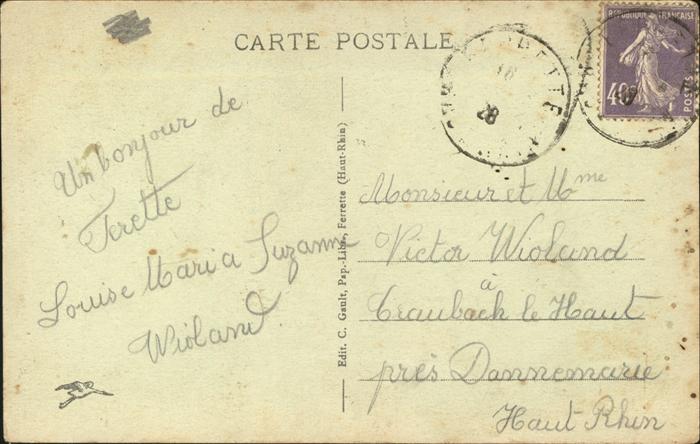 CARTE POSTALE
FERRETTE
16
28
RÉPUBLIQUE FRANÇAISE
40c
POSTES
Un bonjour de
Ferette
Louise Maria Suzanne
Wioland.
Edit. C. Gault, Pap.-Libr., Ferrette (Haut-Rhin)
Monsieur et Mme
Victor Wioland
à
Traubach le Haut
près Dannemarie
Haut Rhin